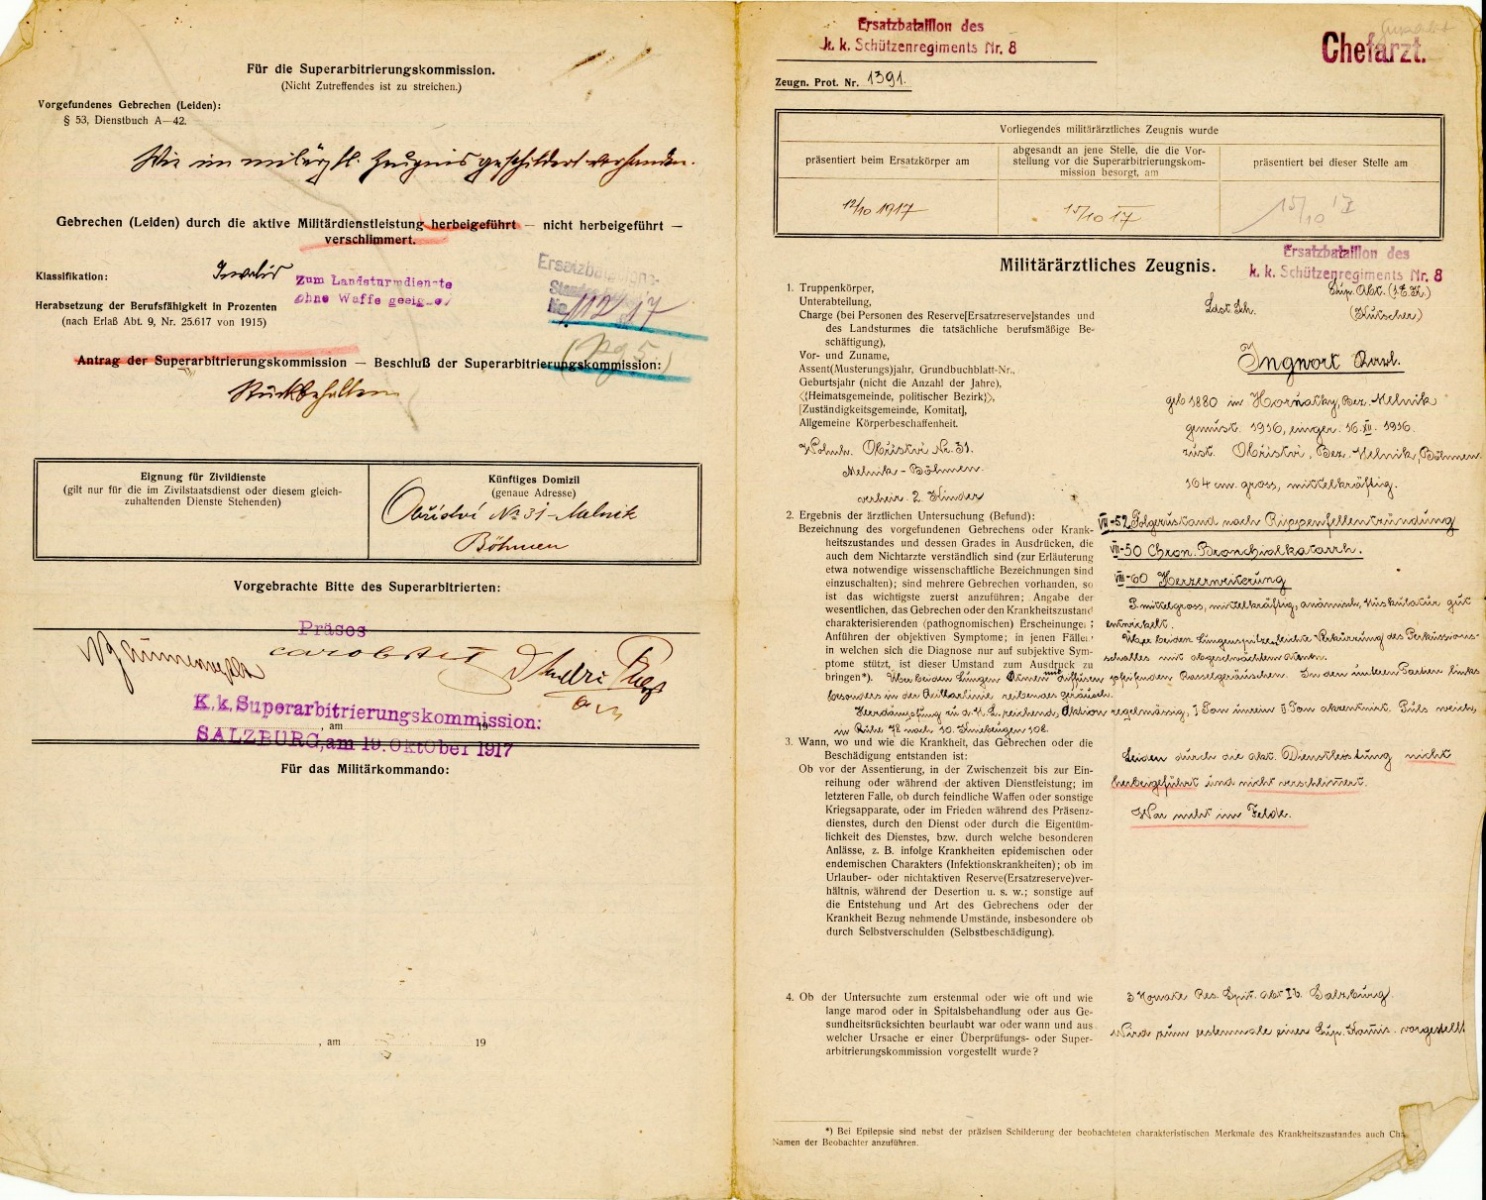 Für die Superarbitrierungskommission.
(Nicht Zutreffendes ist zu streichen.)
Vorgefundenes Gebrechen (Leiden):
§ 53, Dienstbuch A—42.
Wie im milärztl. Zeugnis geschildert vorhanden.
Gebrechen (Leiden) durch die aktive Militärdienstleistung herbeigeführt — nicht herbeigeführt —
verschlimmert.
Klassifikation:
Invalid
Zum Landsturmdienste
ohne Waffe geeignet
Herabsetzung der Berufsfähigkeit in Prozenten
(nach Erlaß Abt. 9, Nr. 25.617 von 1915)
Antrag der Superarbitrierungskommission — Beschluß der Superarbitrierungskommission:
Rückbehalten
Eignung für Zivildienste
(gilt nur für die im Zivilstaatsdienst oder diesem gleich-
zuhaltenden Dienste Stehenden)
Künftiges Domizil
(genaue Adresse)
Obřístvi No 31 - Melnik
Böhmen
Vorgebrachte Bitte des Superarbitrierten:
Präses
K.k. Superarbitrierungskommission:
, am 19
SALZBURG, am 19. Oktober 1917
Für das Militärkommando:
, am 19
Ersatzbataillon des
k. k. Schützenregiments Nr. 8
Chefarzt.
Zeugn. Prot. Nr. 1391.
Vorliegendes militärärztliches Zeugnis wurde
präsentiert beim Ersatzkörper am
abgesandt an jene Stelle, die die Vor-
stellung vor die Superarbitrierungskom-
mission besorgt, am
präsentiert bei dieser Stelle am
12/10 1917
15/10 17
15/10 17
Militärärztliches Zeugnis.
Ersatzbataillon des
k. k. Schützenregiments Nr. 8
1. Truppenkörper,
Unterabteilung,
Charge (bei Personen des Reserve[Ersatzreserve]standes und
des Landsturmes die tatsächliche berufsmäßige Be-
schäftigung),
Vor- und Zuname,
Assent(Musterungs)jahr, Grundbuchblatt-Nr.,
Geburtsjahr (nicht die Anzahl der Jahre),
⟨(Heimatsgemeinde, politischer Bezirk)⟩,
[Zuständigkeitsgemeinde, Komitat],
Allgemeine Körperbeschaffenheit.
Wohnh. Obřistvi Nr. 31.
Melnik - Böhmen.
verheir. 2 Kinder
Ldst. Sch.
(Kutscher)
Ingwort Karl.
geb 1880 in Horňatky, Bez. Melnik
gemust. 1916, einger. 16. XII. 1916.
zust. Obřistvi, Bez. Melnik, Böhmen.
164 cm. gross, mittelkräftig.
2. Ergebnis der ärztlichen Untersuchung (Befund):
Bezeichnung des vorgefundenen Gebrechens oder Krank-
heitszustandes und dessen Grades in Ausdrücken, die
auch dem Nichtarzte verständlich sind (zur Erläuterung
etwa notwendige wissenschaftliche Bezeichnungen sind
einzuschalten); sind mehrere Gebrechen vorhanden, so
ist das wichtigste zuerst anzuführen; Angabe der
wesentlichen, das Gebrechen oder den Krankheitszustand
charakterisierenden (pathognomischen) Erscheinungen;
Anführen der objektiven Symptome; in jenen Fällen,
in welchen sich die Diagnose nur auf subjektive Sym-
ptome stützt, ist dieser Umstand zum Ausdruck zu
bringen*).
VII-52 Folgezustand nach Rippenfellentzündung
VII-50 Chron. Bronchialkatarrh.
VIII-60 Herzerweiterung
mittelgross, mittelkräftig, anämisch, Muskulatur gut
entwickelt.
Über beiden Lungenspitzen leichte Verkürzung des Perkussions-
schalles mit abgeschwächtem Atmen.
Über beiden Lungen Atmen mit diffusen pfeifenden Rasselgeräuschen. In den unteren Partien links
besonders in der Axillarlinie reibendes Geräusch.
Herzdämpfung reichend, Aktion regelmässig, I Ton unrein II Ton akzentuirt. Puls weich,
in Ruhe 78 nach 10. Kniebeugen 108.
3. Wann, wo und wie die Krankheit, das Gebrechen oder die
Beschädigung entstanden ist:
Ob vor der Assentierung, in der Zwischenzeit bis zur Ein-
reihung oder während der aktiven Dienstleistung; im
letzteren Falle, ob durch feindliche Waffen oder sonstige
Kriegsapparate, oder im Frieden während des Präsenz-
dienstes, durch den Dienst oder durch die Eigentüm-
lichkeit des Dienstes, bzw. durch welche besonderen
Anlässe, z. B. infolge Krankheiten epidemischen oder
endemischen Charakters (Infektionskrankheiten); ob im
Urlauber- oder nichtaktiven Reserve(Ersatzreserve)ver-
hältnis, während der Desertion u. s. w.; sonstige auf
die Entstehung und Art des Gebrechens oder der
Krankheit Bezug nehmende Umstände, insbesondere ob
durch Selbstverschulden (Selbstbeschädigung).
Leiden durch die akt. Dienstleistung nicht
herbeigeführt und nicht verschlimert.
War nicht im Felde.
4. Ob der Untersuchte zum erstenmal oder wie oft und wie
lange marod oder in Spitalsbehandlung oder aus Ge-
sundheitsrücksichten beurlaubt war oder wann und aus
welcher Ursache er einer Überprüfungs- oder Super-
arbitrierungskommission vorgestellt wurde?
3 Monate Res. Spit. Abt Ib. Salzburg.
Wird zum erstenmale einer Sup. Komis. vorgestellt
*) Bei Epilepsie sind nebst der präzisen Schilderung der beobachteten charakteristischen Merkmale des Krankheitszustandes auch
Namen der Beobachter anzuführen.